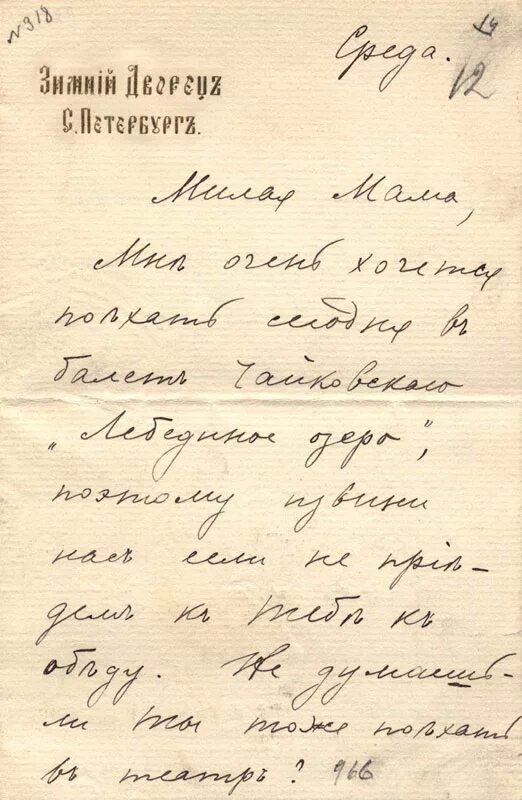 N 318
14
Среда.
12
Зимній Дворецъ
С. Петербургъ.
Милая Мама,
Мнѣ очень хочется
поѣхать сегодня въ
балетъ Чайковскаго
„Лебединое озеро",
поэтому извини
насъ если не пріѣ-
демъ къ тебѣ къ
обѣду. Не думаешь-
ли ты тоже поѣхать
въ театръ? 966